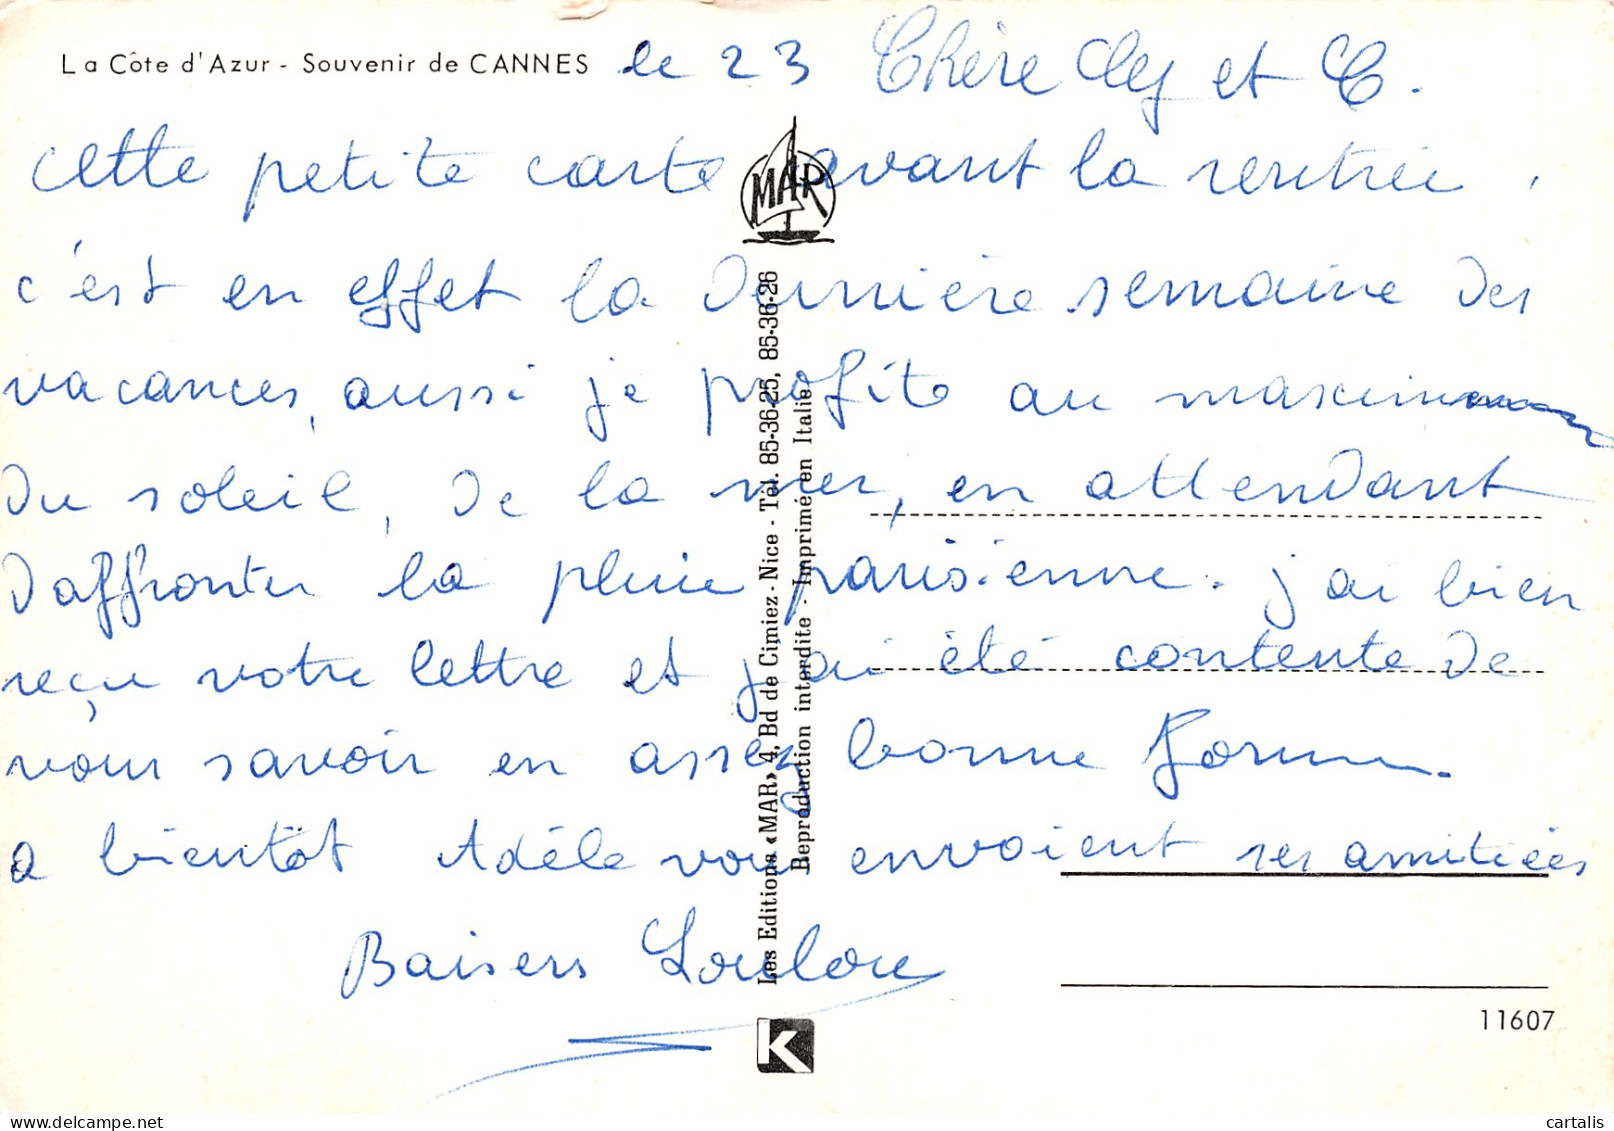 La Côte d'Azur - Souvenir de CANNES le 23 Chère Cly et C.
cette petite carte avant la rentrée,
c'est en effet la dernière semaine des
vacances, aussi je profite au maximum
du soleil, de la mer, en attendant
d'affronter la pluie parisienne. j'ai bien
reçu votre lettre et j'ai été contente de
vous savoir en assez bonne forme.
a bientôt Adèle vous envoient ses amitiées
Baisers Loulou
MAR
Les Editions «MAR» 4, Bd de Cimiez - Nice - Tél. 85-36-25, 85-36-26
Reproduction interdite - Imprimé en Italie
K
11607
cartalis